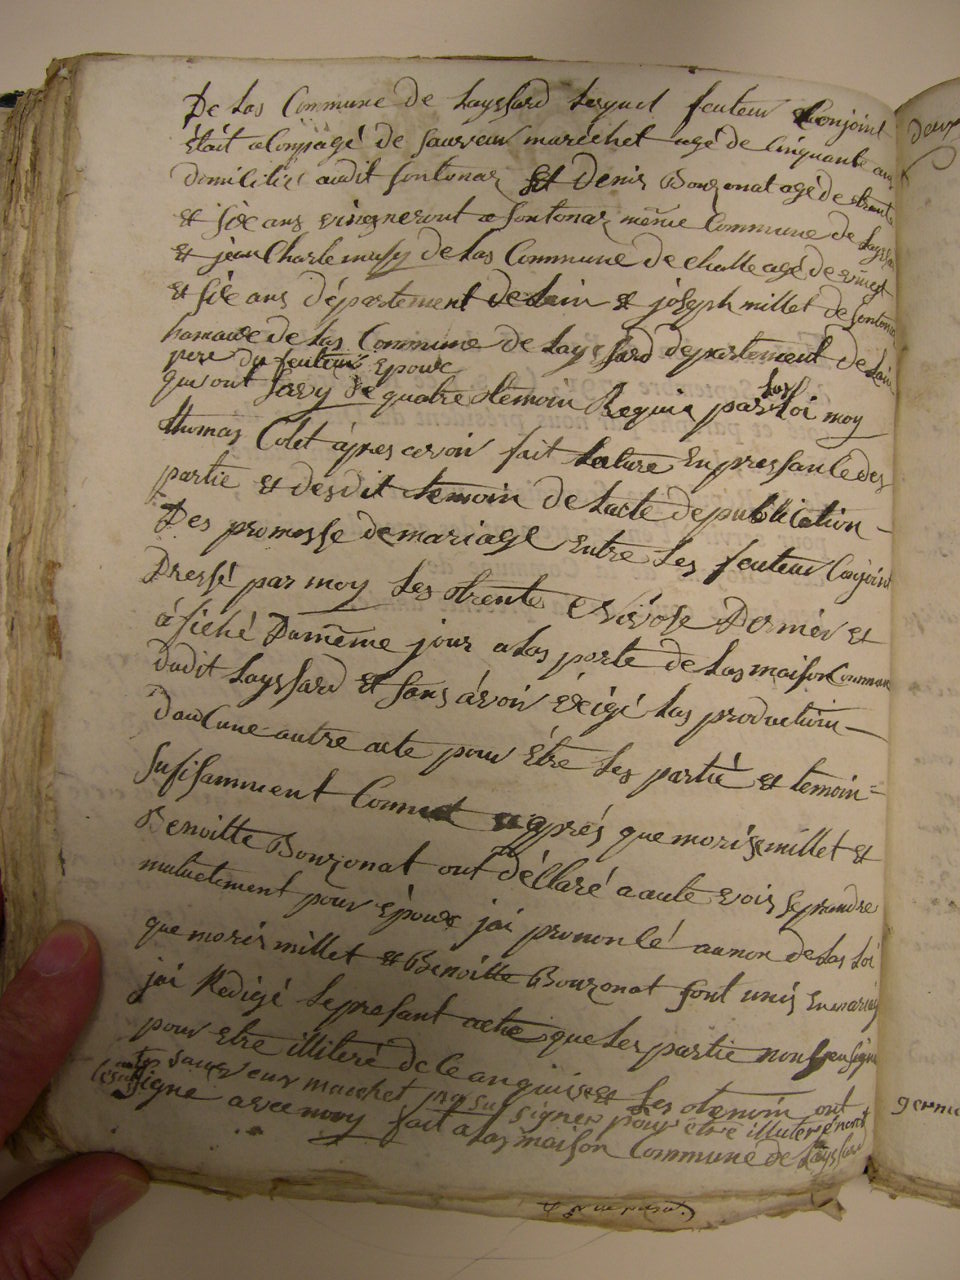 De Las Commune de Layssard Lesquel feuteur Conjoint
était aConpagé de Sauveur marechet agé de Cinquante ans
domicilié audit fontonas Et denis Bouzonat agé de trente
et six ans vigneront a fontonas même Commune de Layssar
et jean Charle musy de Las Commune de challe agé de vingt
et six ans département de Lain et joseph millet de fontonas
hamaux de Las Commune de Layssard departement de Lain
pere du feuteur Epouc
qui ont quatre temoin Requis par Las Loi moy
thomas Colet apres avoir fait Lature En pressance des
partie et desdit temoin de Lacte de publication
Des promesse de mariage Entre Les feuteur Conjoint
Dressé par moy Les trente Nivose Dernier et
afiché Dumême jour a Las porte de Las maison Commune
dudit Layssard et sans avoir éxigé Las production
daucune autre acte pour être Les partie et temoin
Sufisamment Connut aprés que moris millet et
Benoitte Bouzonat ont déclaré aaute voix se prendre
mutuelement pour Epoux jai prononcé aunon de Las Loi
que moris millet et Benoitte Bouzonat sont unis En mariag
jai Redigé Le presant acte que Les partie nonts seu signé
pour etre illiteré de ce enquis et Les temoin ont
sauveur marechet na su signer pour etre illuteré
signe avec moy fait a Las maison Commune de Layssard